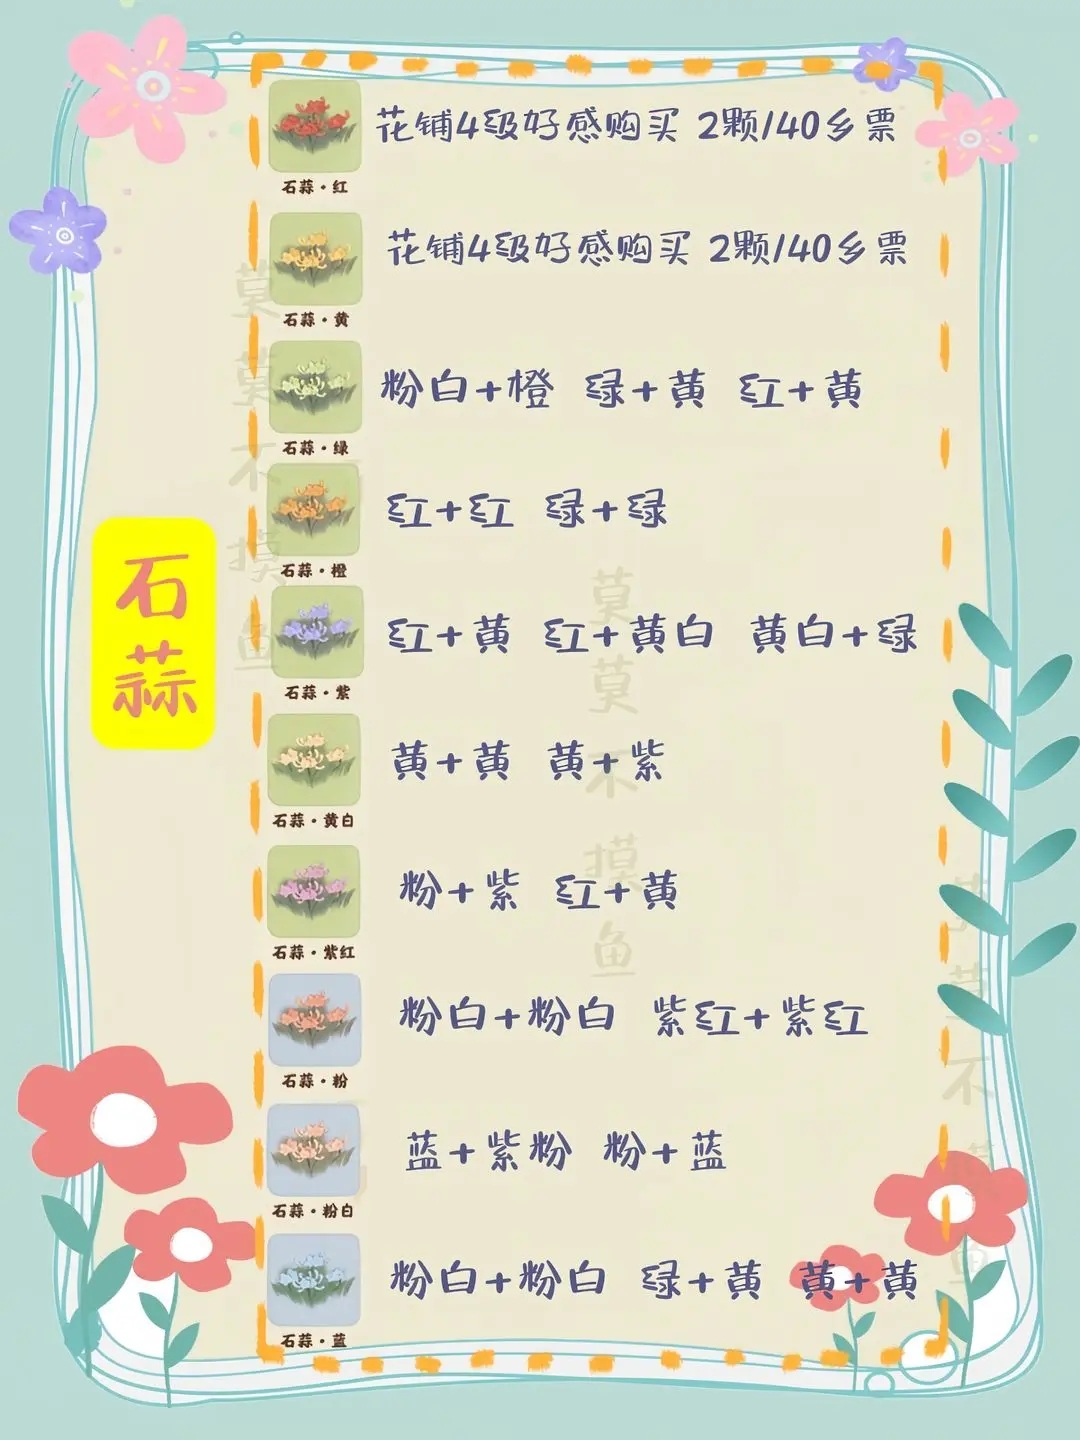 花铺4级好感购买 2颗/40乡票
石蒜·红
花铺4级好感购买 2颗/40乡票
石蒜·黄
粉白+橙 绿+黄 红+黄
石蒜·绿
红+红 绿+绿
石蒜·橙
石蒜
红+黄 红+黄白 黄白+绿
石蒜·紫
黄+黄 黄+紫
石蒜·黄白
粉+紫 红+黄
石蒜·紫红
粉白+粉白 紫红+紫红
石蒜·粉
蓝+紫粉 粉+蓝
石蒜·粉白
粉白+粉白 绿+黄 黄+黄
石蒜·蓝
莫莫不摸鱼
莫莫不摸鱼